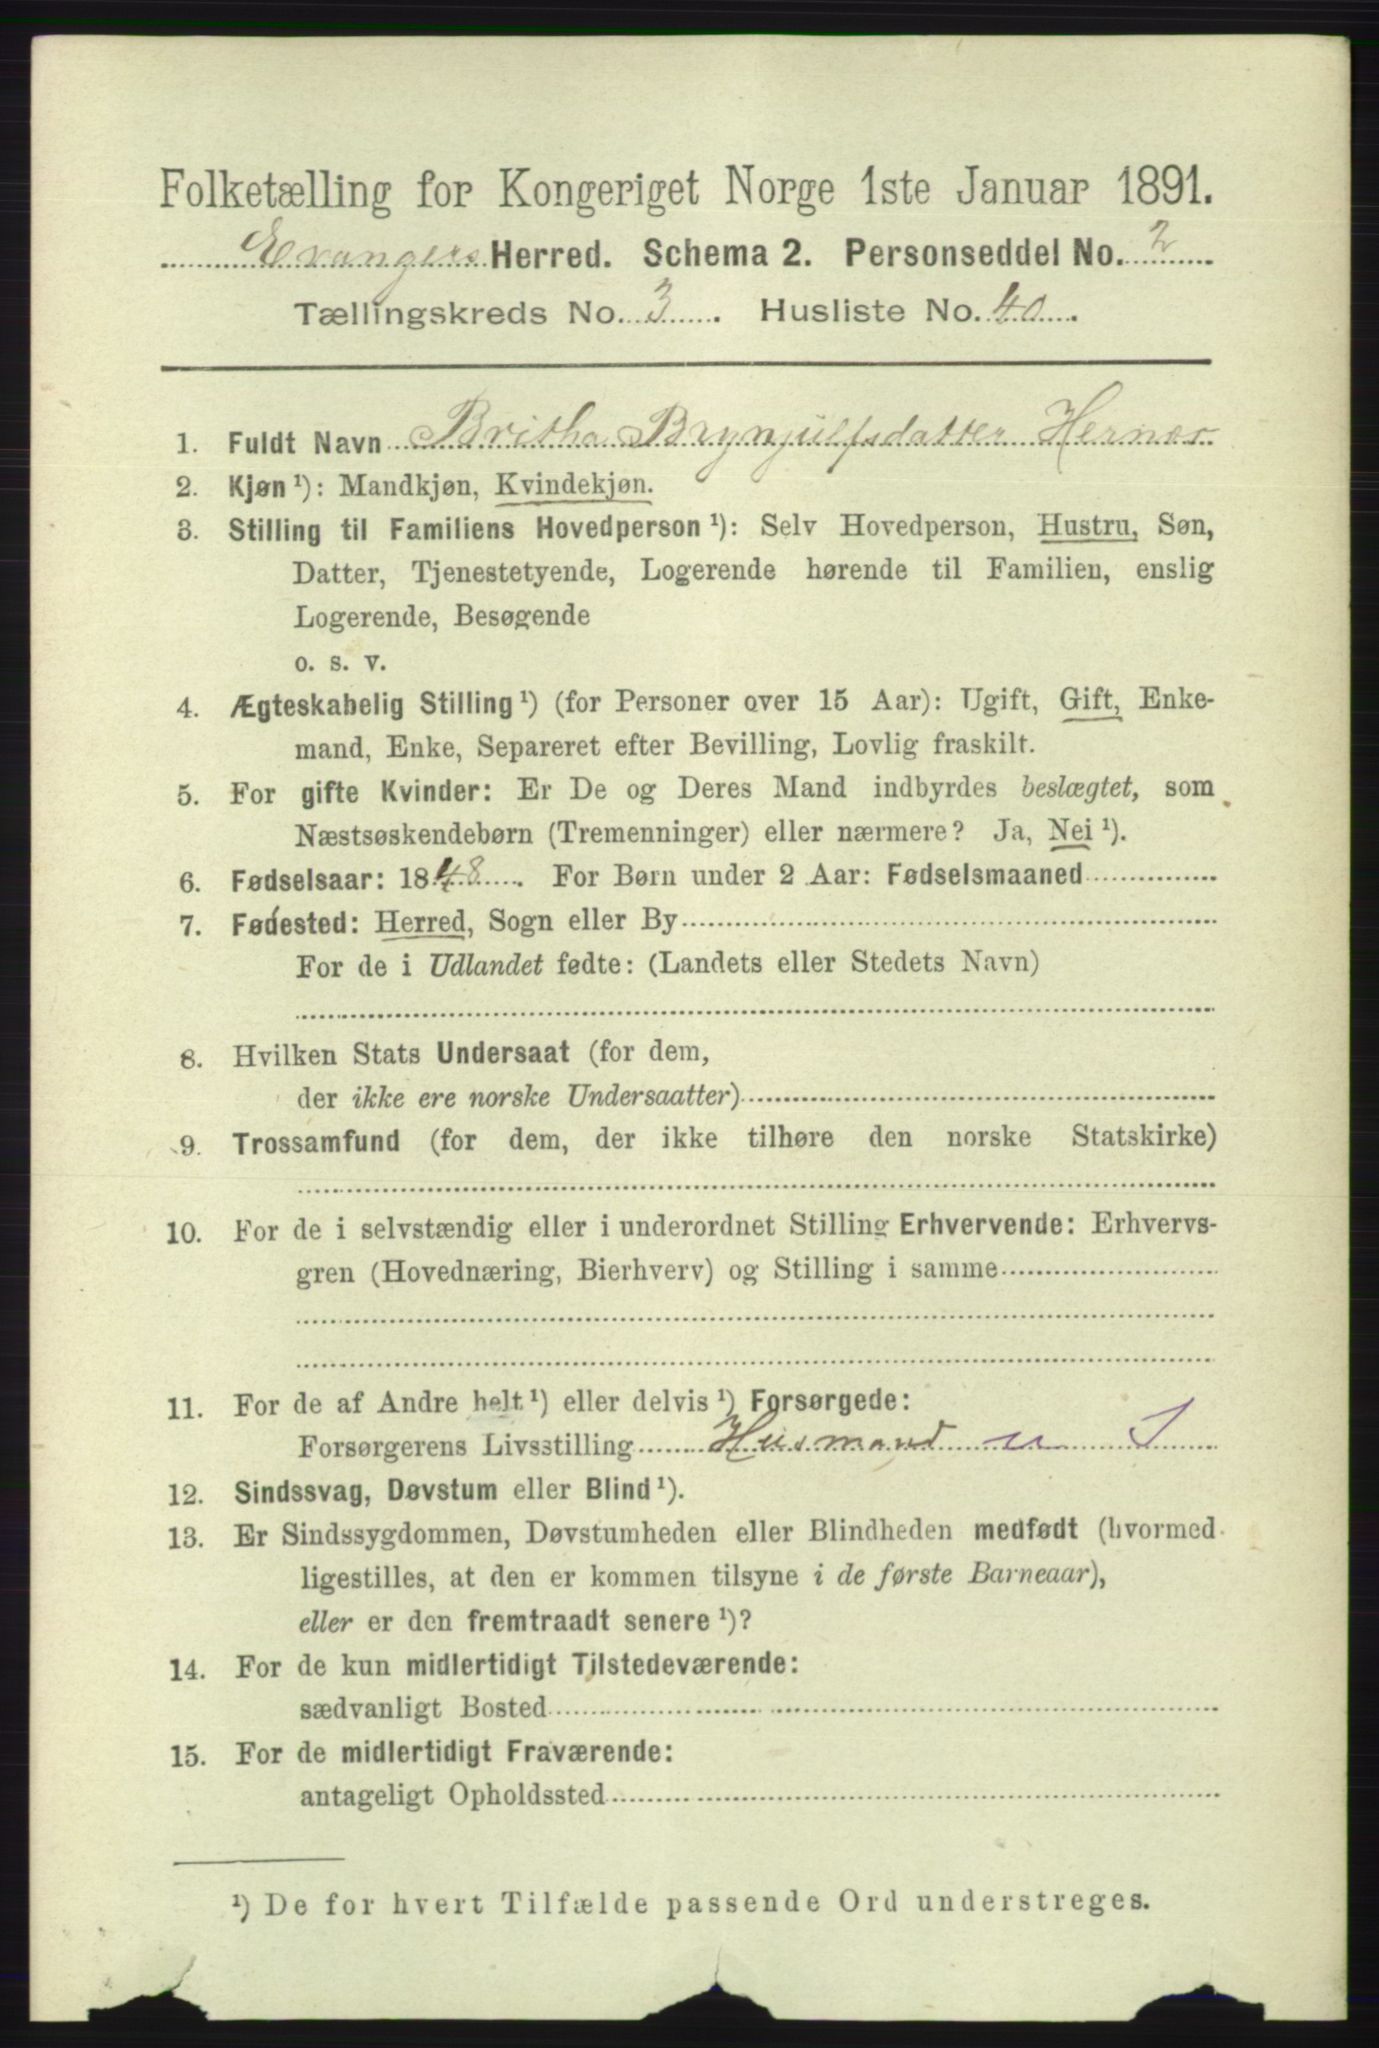 Folketælling for Kongeriget Norge 1ste Januar 1891.
Evangers Herred. Schema 2. Personseddel No. 2
Tællingskreds No. 3. Husliste No. 40.
1. Fuldt Navn Britha Brynjulfsdatter Hernes
2. Kjøn ¹): Mandkjøn, Kvindekjøn.
3. Stilling til Familiens Hovedperson ¹): Selv Hovedperson, Hustru, Søn,
Datter, Tjenestetyende, Logerende hørende til Familien, enslig
Logerende, Besøgende
o. s. v.
4. Ægteskabelig Stilling ¹) (for Personer over 15 Aar): Ugift, Gift, Enke-
mand, Enke, Separeret efter Bevilling, Lovlig fraskilt.
5. For gifte Kvinder: Er De og Deres Mand indbyrdes beslægtet, som
Næstsøskendebørn (Tremenninger) eller nærmere? Ja, Nei ¹).
6. Fødselsaar: 1848. For Børn under 2 Aar: Fødselsmaaned
7. Fødested: Herred, Sogn eller By
For de i Udlandet fødte: (Landets eller Stedets Navn)
8. Hvilken Stats Undersaat (for dem,
der ikke ere norske Undersaatter)
9. Trossamfund (for dem, der ikke tilhøre den norske Statskirke)
10. For de i selvstændig eller i underordnet Stilling Erhvervende: Erhvervs-
gren (Hovednæring, Bierhverv) og Stilling i samme
11. For de af Andre helt ¹) eller delvis ¹) Forsørgede:
Forsørgerens Livsstilling Husmand
12. Sindssvag, Døvstum eller Blind ¹).
13. Er Sindssygdommen, Døvstumheden eller Blindheden medfødt (hvormed
ligestilles, at den er kommen tilsyne i de første Barneaar),
eller er den fremtraadt senere ¹)?
14. For de kun midlertidigt Tilstedeværende:
sædvanligt Bosted
15. For de midlertidigt Fraværende:
antageligt Opholdssted
¹) De for hvert Tilfælde passende Ord understreges.